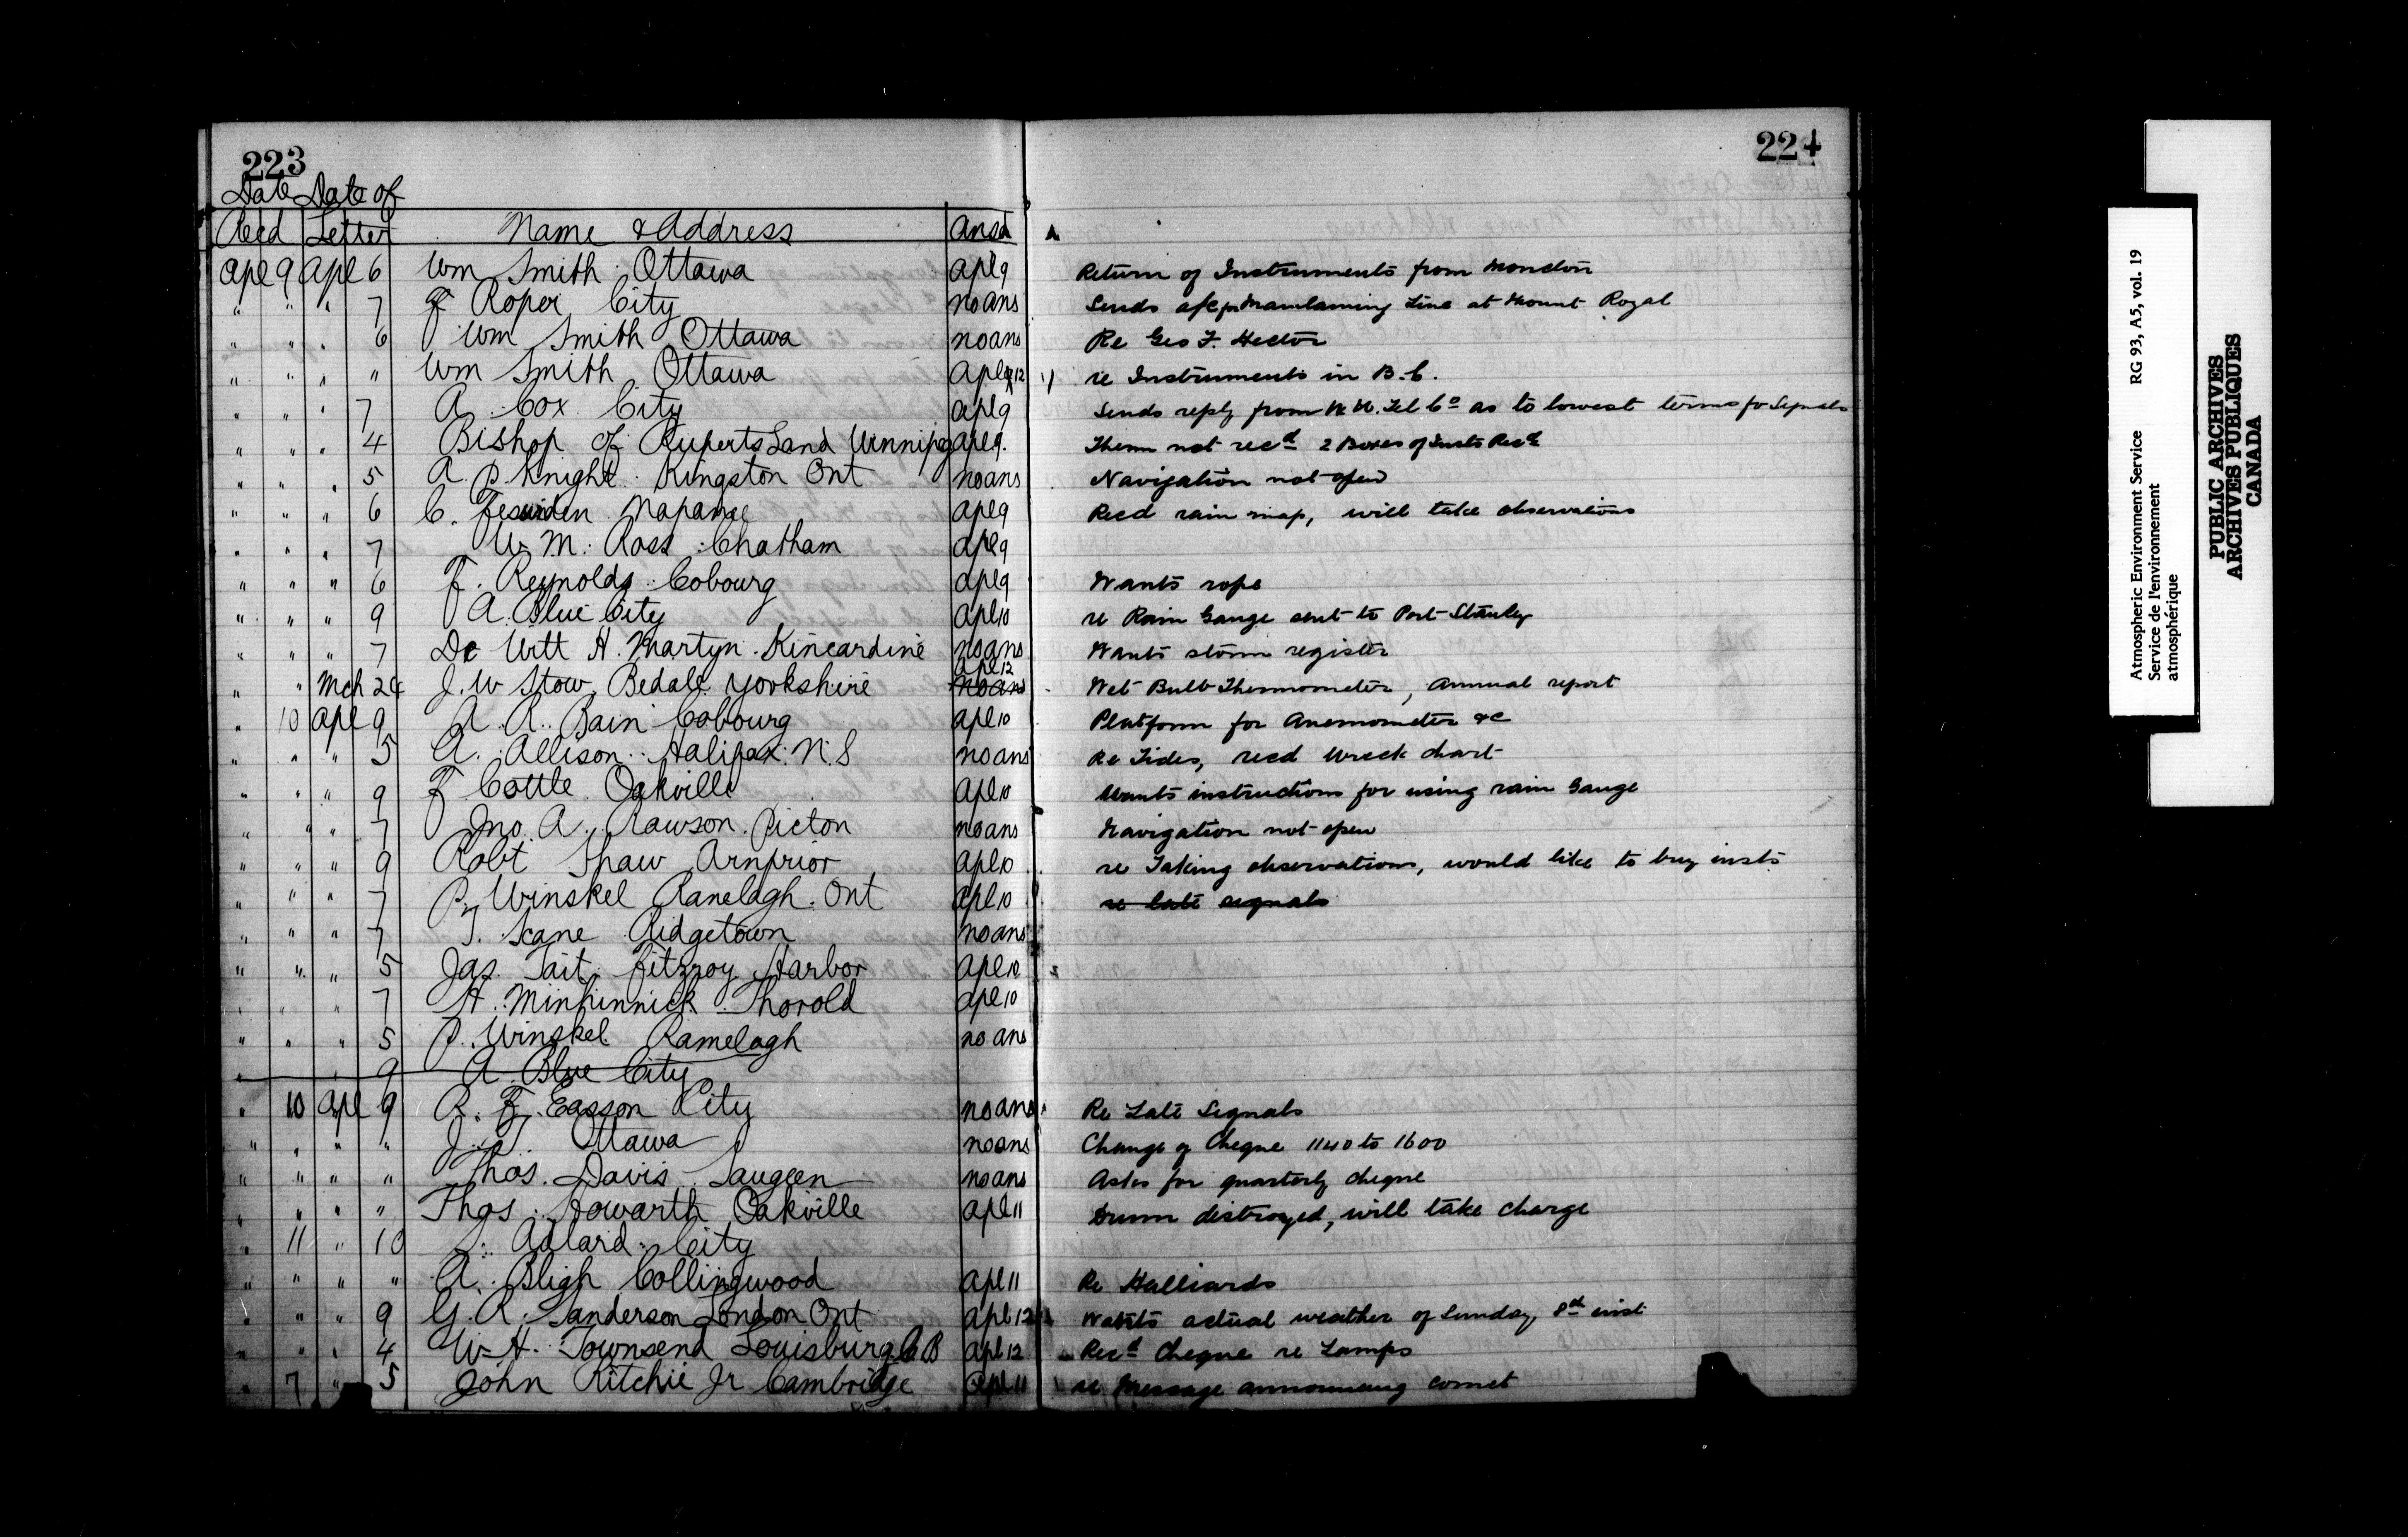 223
224
Date Date of
Recd Letter Name & Address Ansd
Apl 9 Apl 6 Wm Smith Ottawa Apl 9 Return of Instruments from Moncton
" " " 7 F Roper City no ans Sends a/c for Maintaining Line at Mount Royal
" " " 6 Wm Smith Ottawa no ans Re Geo F. Hector
" " " " Wm Smith Ottawa Apl 12 re Instruments in B.C.
" " " 7 A. Cox City Apl 9 Sends reply from Tel Co as to lowest terms for Signals
" " " 4 Bishop of Ruperts Land Winnipeg Apl 9. Therm not recd 2 Boxes of Insts Recd
" " " 5 A. P. Knight Kingston Ont no ans Navigation not open
" " " 6 C. Napanee Apl 9 Recd rain map, will take observations
" " " 7 W. M. Ross Chatham Apl 9
" " " 6 F. Reynolds Cobourg Apl 9 Wants rope
" " " 9 A. Blue City Apl 10 re Rain Gauge sent to Port Stanley
" " " 7 De Witt H. Martyn Kincardine no ans Wants storm register
" " Mch 24 J. W Stow, Bedale Yorkshire Apl 12 no ans Wet Bulb Thermometer, Annual report
" 10 Apl 9 A. R. Bain Cobourg Apl 10 Platform for Anemometer &c
" " " 5 A. Allison Halifax N.S no ans Re Tides, recd Wreck chart
" " " 9 F Cottle Oakville Apl 10 Wants instructions for using rain Gauge
" " " 7 Jno. A. Rawson Picton no ans Navigation not open
" " " 9 Robt Shaw Arnprior Apl 10 re Taking observations, would like to buy insts
" " " 7 P. Winskel Ranelagh Ont Apl 10 re late signals
" " " 7 J. Scane Ridgetown no ans
" " " 5 Jas. Tait Fitzroy Harbor Apl 10
" " " 7 H. Minhinnick Thorold Apl 10
" " " 5 P. Winskel Ramelagh no ans
" " " 9 A Blue City
" 10 Apl 9 R. F. Easson City no ans Re Late Signals
" " " " Ottawa no ans Change of Cheque 1140 to 1600
" " " " Thos. Davis Saugeen no ans Asks for quarterly cheque
" " " " Thos. Howarth Oakville Apl 11 Drum distroyed, will take charge
" 11 " 10 Adlard City
" " " " A. Bligh Collingwood Apl 11 Re Halliards
" " " 9 G. R. Sanderson London Ont Apl 12 Wants actual weather of Sunday, 8th inst
" " " 4 W. H. Townsend Louisburg C B Apl 12 Recd Cheque re Lamps
" 7 " 5 John Ritchie Jr Cambridge Apl 11 re Message announcing comet
Atmospheric Environment Service RG 93, A5, vol. 19
Service de l'environnement
atmosphérique
PUBLIC ARCHIVES
ARCHIVES PUBLIQUES
CANADA